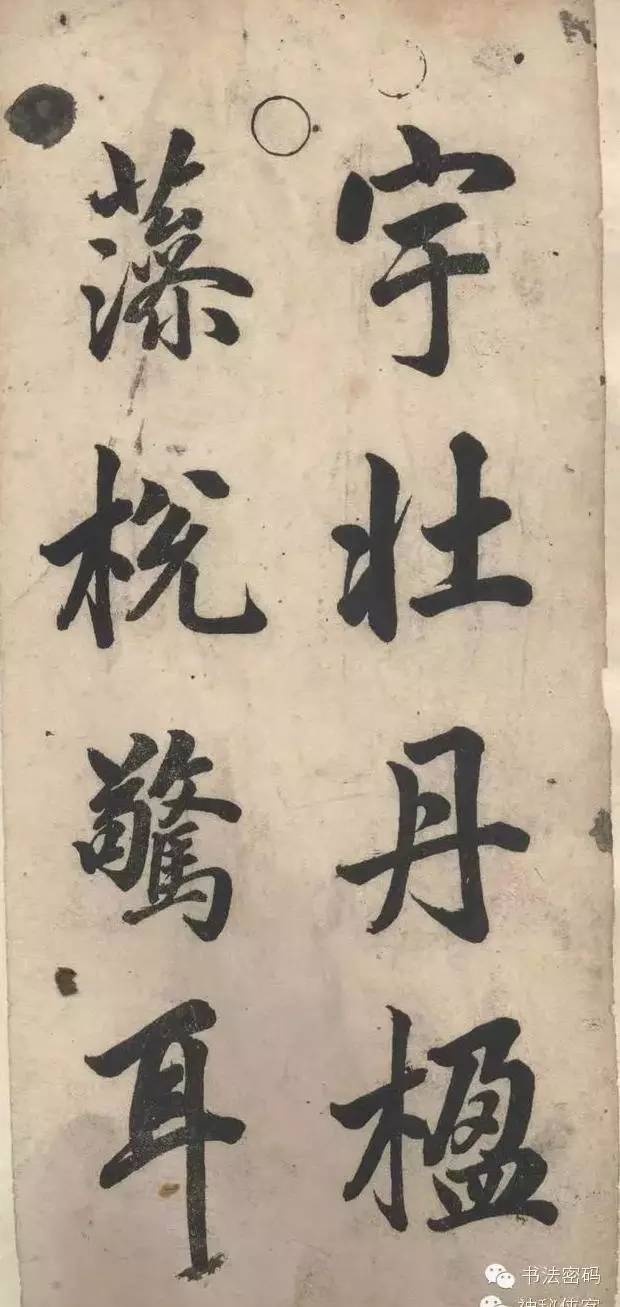 宇壮丹楹
藻梲驚耳
书法密码